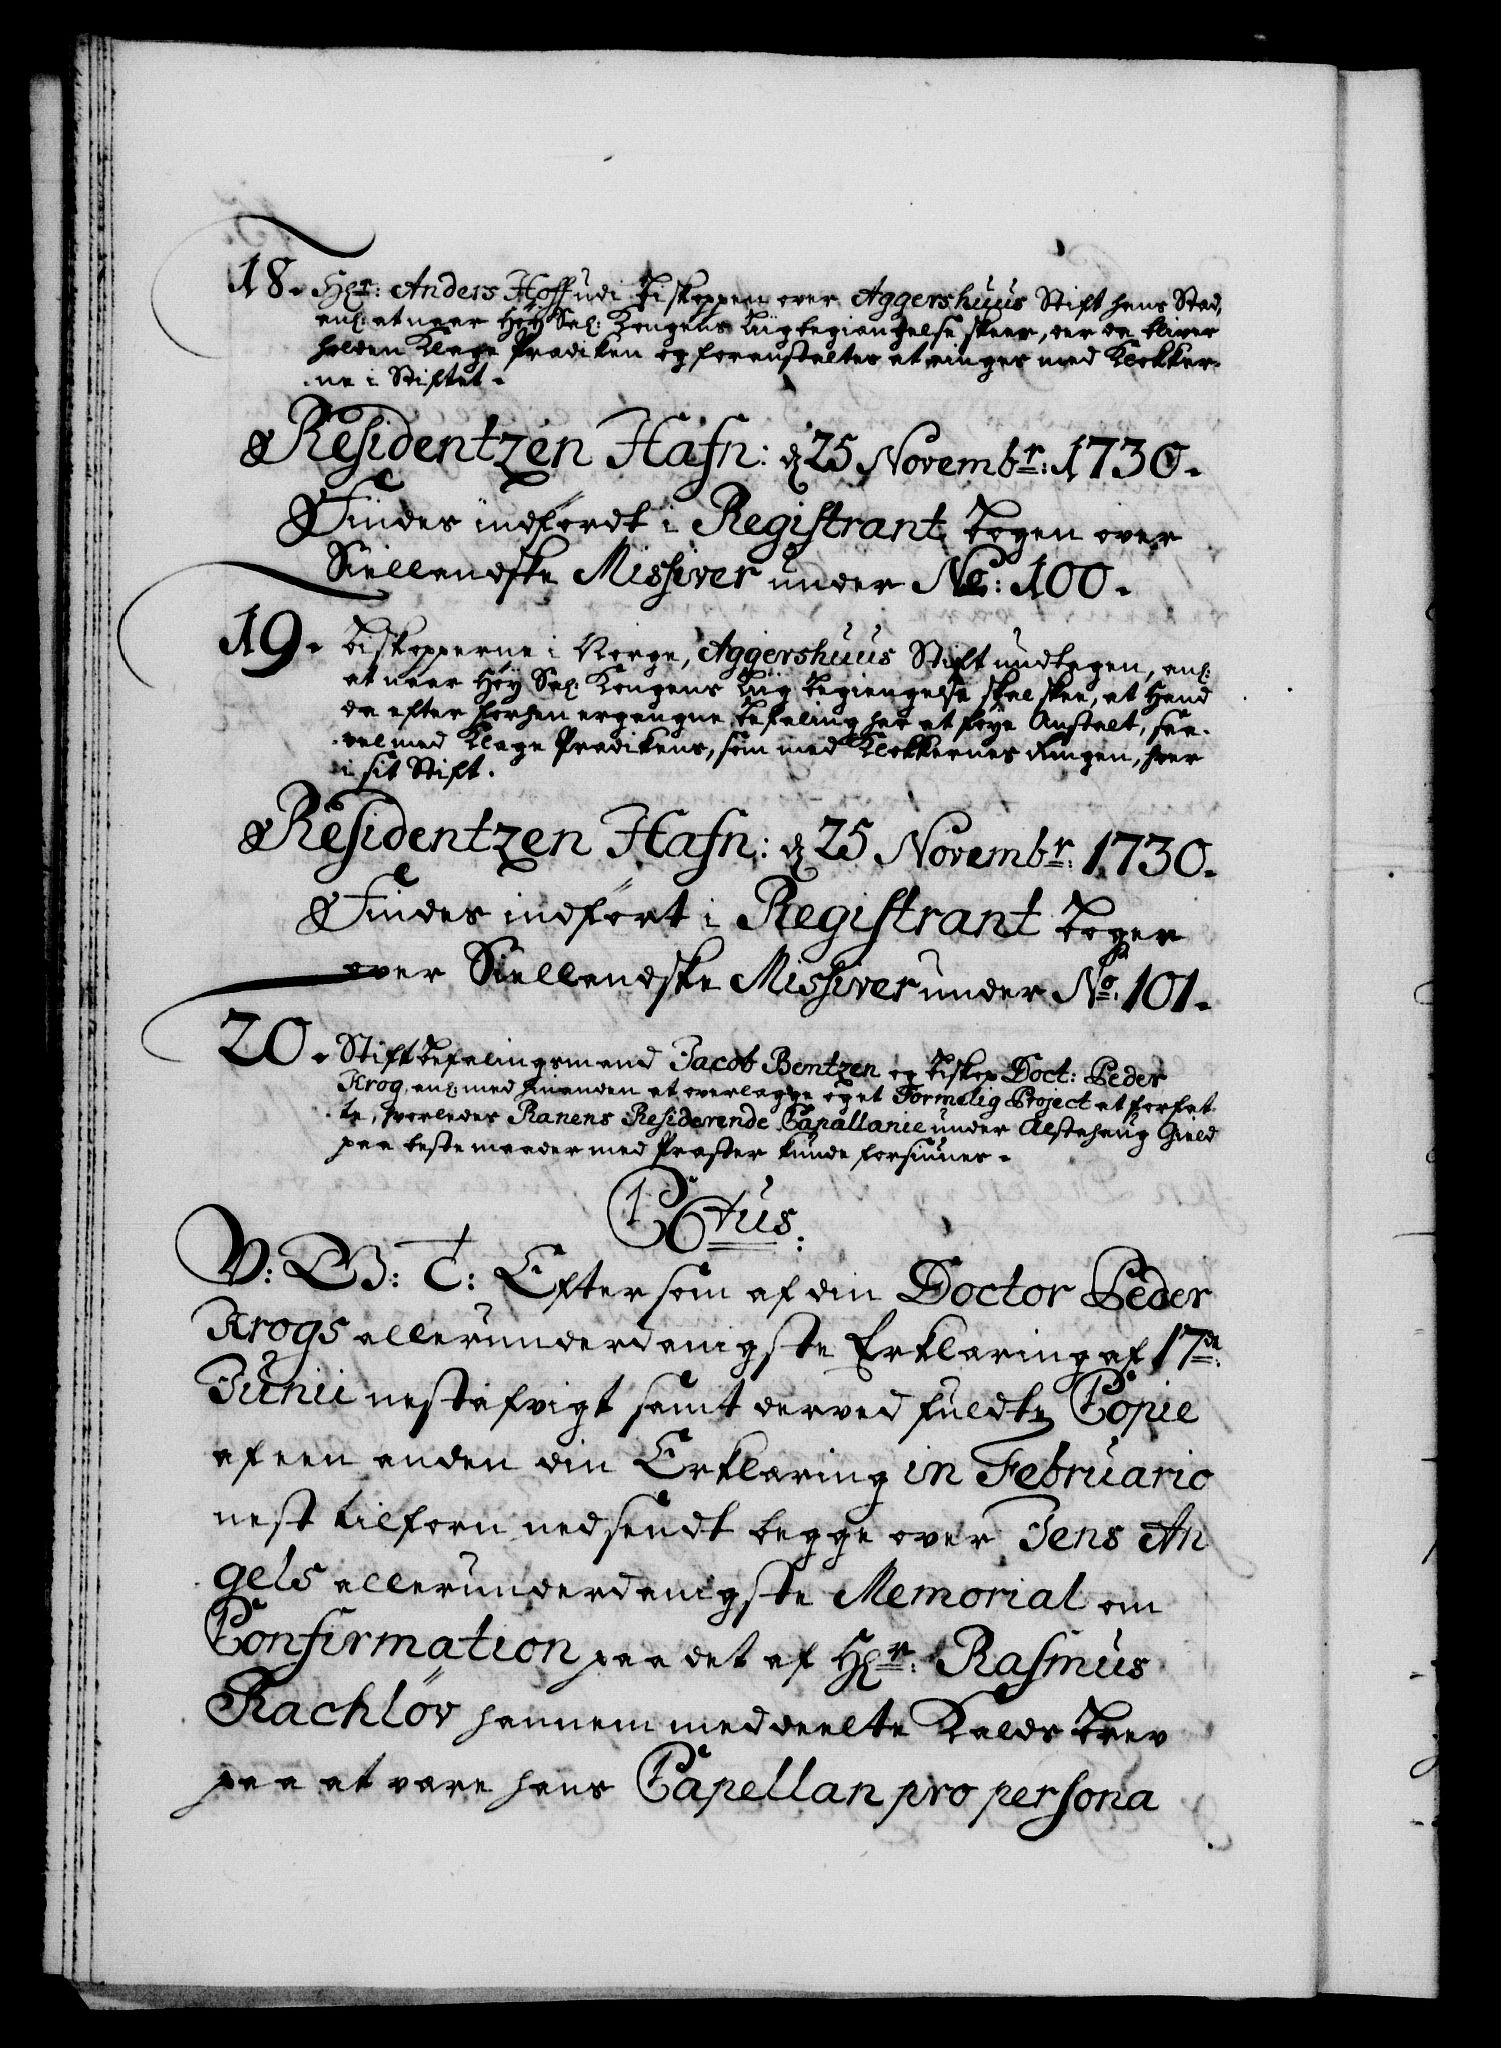 18. Hr: Anders Hoff udi Biskoppen over Aggershuus Stift hans Sted,
anl: at naar Høy Sal: Kongens Liigbegiængelse skeer, der da bliver
holden Klage Prædiken og foranstaltes at ringes med Klokker-
ne i Stiftet.
Residentzen Hafn: d 25 Novembr: 1730.
Findes indfördt i Registrant Bogen over
Siellandske Missiver under No: 100.
19. Biskopperne i Norge, Aggershuus Stift undtagen, anl:
at naar Høy Sal: Kongens Liig begiengelse skal skee, at Hand
da efter forhen ergangne befaling har at føye Anstalt, saa-
vel med Klage Prædikens, som med Klokkernes Ringen, hver
i sit Stift.
Residentzen Hafn: d 25 Novembr: 1730.
Findes indført i Registrant Bogen
over Siellandske Missiver under No: 101.
20. Stiftbefalingsmand Jacob Bentzen og Biskop Doct: Peder
Krog, anl: med hinanden at overlægge og et Formelig Project at forfat-
te, hvorledes Ranens Residerende Capallanie under Alstahaug Gield
paa beste maader med Præster kunde forsiunes.
C6tus.
V: G: T: Eftersom af din Doctor Peder
Krogs allerunderdanigste Erklæring af 17de
Junii nestafvigt samt derved fuldte Copie
af een anden din Erklæring in Februario
nest tilforn nedsendt begge over Jens An
gels allerunderdanigste Memorial om
Confirmation paa det af Hr: Rasmus
Rachlöv hannem meddeelte Kalds Brev
paa at være hans Capellan pro persona